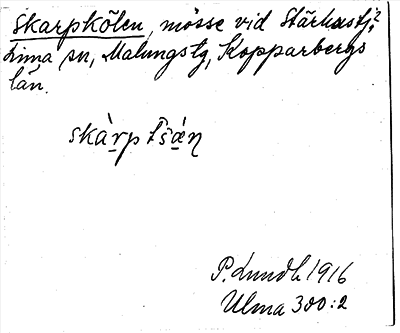 Skarpkölen, mösse vid Stärkustj?
Lima sn, Malungs tg, Kopparbergs
län.
skàrp tšǽn
P. Lundh 1916
Ulma 300:2